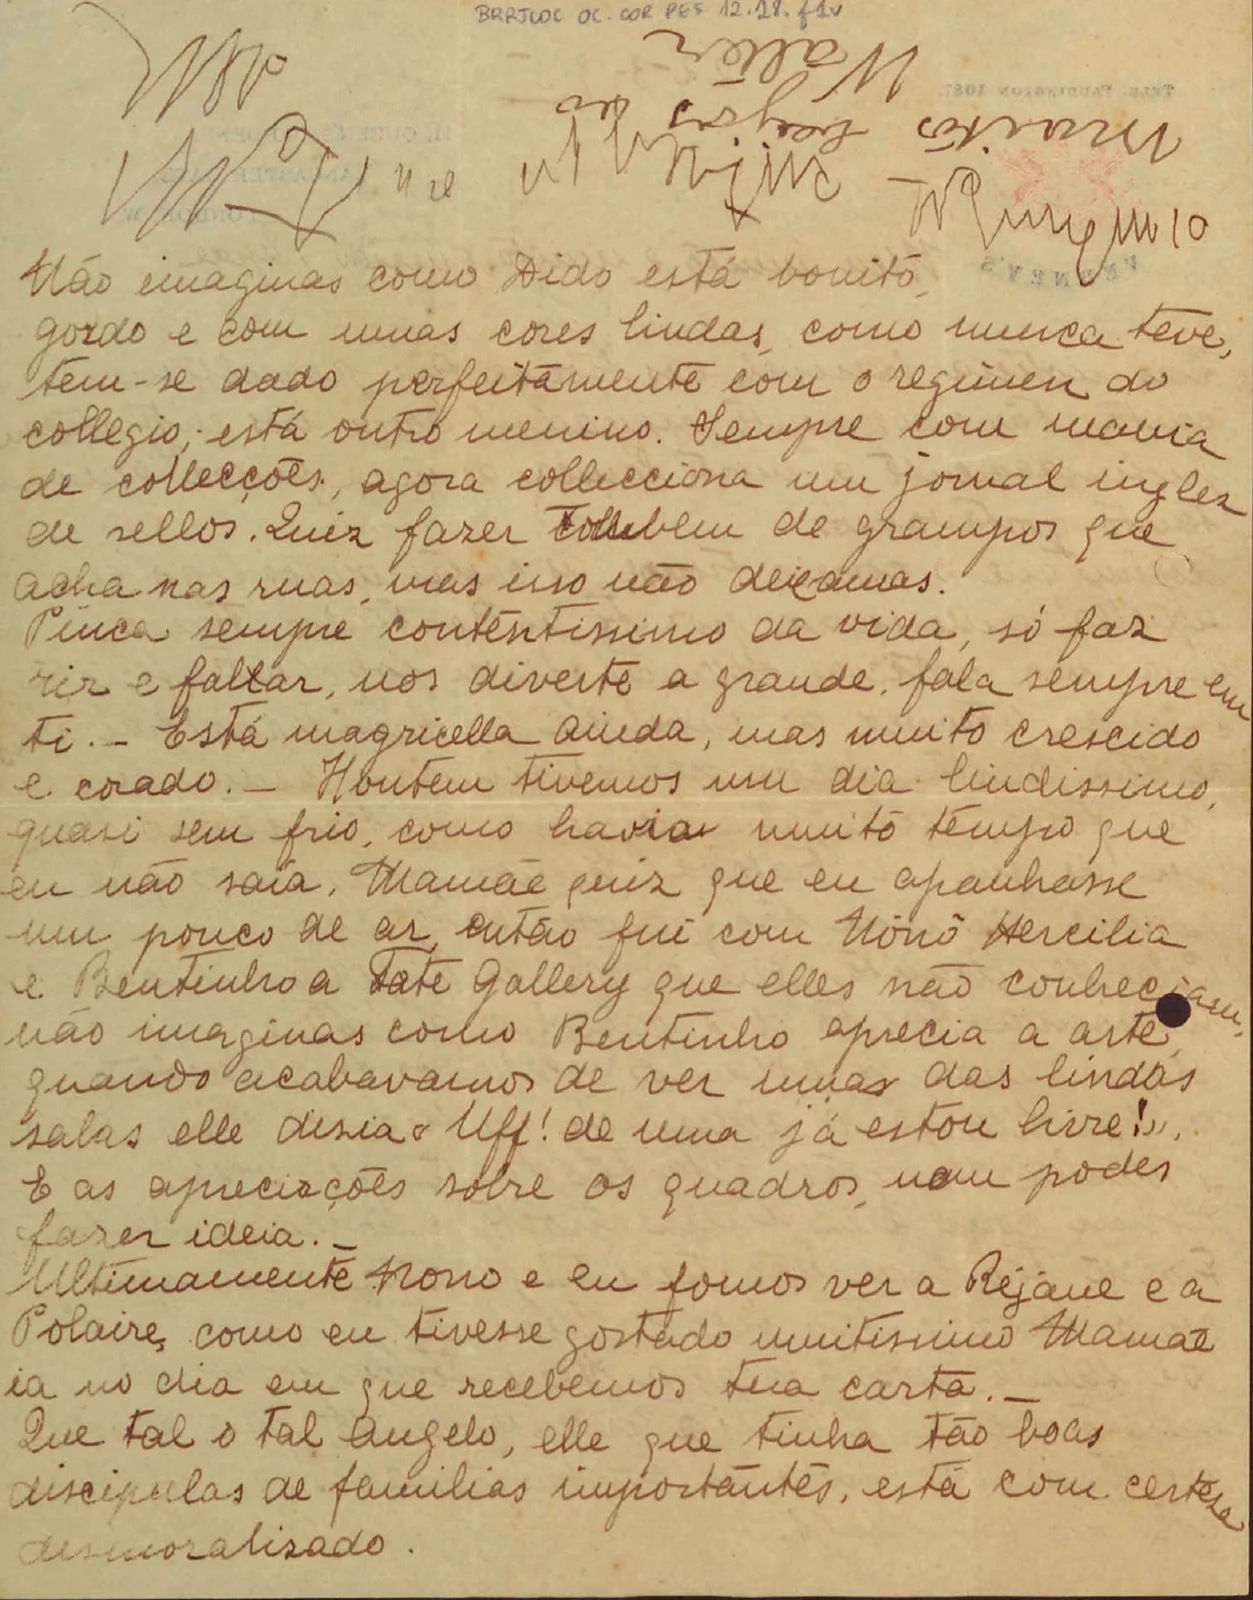 BRRJCOC OC. COR PES 12.28. f1v
Muitos beijos do
Walter
TELE. PADDINGTON 1087.
Não imaginas como Dido está bonito,
gordo e com umas cores lindas, como nunca teve,
tem-se dado perfeitamente com o regimen do
collegio; está outro menino. Sempre com mania
de collecções, agora collecciona um jornal inglez
de sellos. Quiz fazer tambem de grampos que
acha nas ruas, mas isso não deixamos.
Pinca sempre contentissimo da vida, só faz
rir e faltar, nos diverte a grande, fala sempre em
ti. _ Está magricella ainda, mas muito crescido
e corado. _ Hontem tivemos um dia lindissimo,
quasi sem frio, como havia muito tempo que
eu não saía. Mamãe quiz que eu apanhasse
um pouco de ar, então fui com Nônô Hercilia
e Bentinho a Tate Gallery que elles não conheciam,
não imaginas como Bentinho aprecia a arte,
quando acabavamos de ver umas das lindas
salas elle disia "Uff! de uma já estou livre!".
E as apreciações sobre os quadros, nem podes
fazer ideia. _
Ultimamente Nono e eu fomos ver a Réjane e a
Polaire, como eu tivesse gostado muitissimo Mamãe
ia no dia em que recebemos tua carta. _
Que tal o tal Angelo, elle que tinha tão boas
discipulas de familias importantes, está com certesa
desmoralizado.